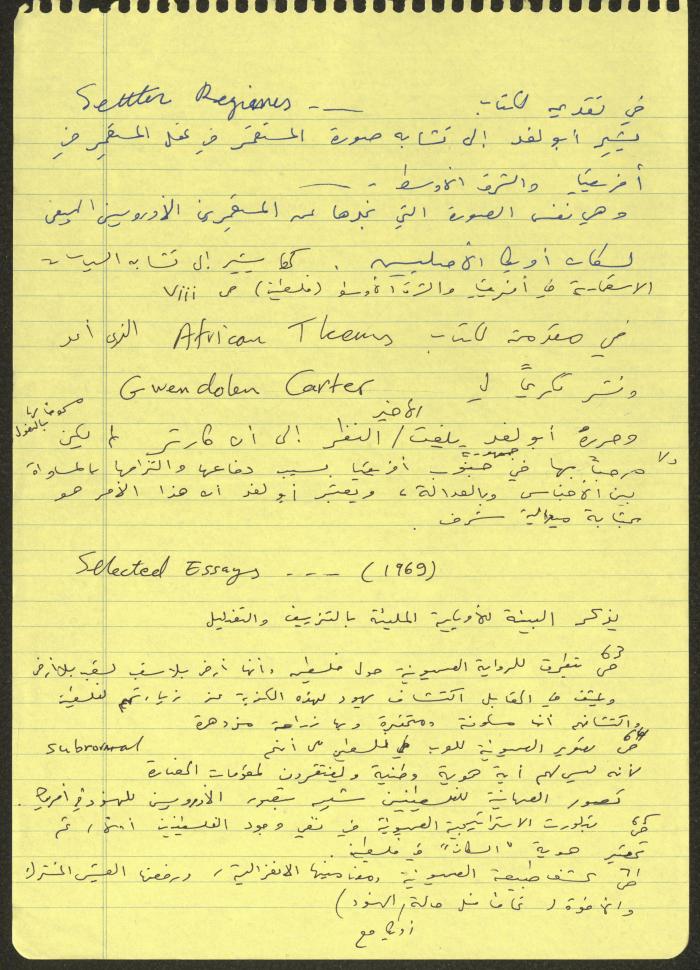 في تقديمه لكتاب Settler Regimes ---
يشير أبو لغد إلى تشابه صورة المستعمَر في عقل المستعمِر في
أفريقيا والشرق الأوسط - —
وهي نفس الصورة التي نجدها عن المستعمرين الأوروبيين البيض
لسكان أمريكا الأصليين . كما يشير إلى تشابه السياسات
الاستعمارية في أفريقيا والشرق الأوسط (فلسطين) ص viii
في مقدمته لكتاب African Themes الذي أعد
ونشر تكريماً لـ Gwendolen Carter
وحرره أبو لغد يلفت / الأخير النظر إلى أن كارتر لم يكن
مرحباً بها في جمهورية جنوب أفريقيا بسبب دفاعها والتزامها بالمساواة vi
بين الأجناس وبالعدالة، ويعتبر أبو لغد أن هذا الأمر هو
بمثابة ميدالية شرف .
Selected Essays --- (1969)
يذكر البيئة المليئة بالتزييف والتضليل
ص 63 يتطرق للرواية الصهيونية حول فلسطين وأنها أرض بلا شعب لشعب بلا أرض
في المقابل اكتشاف يهود لهذه الكذبة عند زيارتهم لفلسطين
واكتشافهم أنها مسكونة ومتحضرة وبها زراعة مزدهرة
ص 64 تصوير الصهيونية للعرب في فلسطين على أنهم subnormal
لأنه ليس لهم أية هوية وطنية ويفتقرون لمقومات الحضارة
تصور الصهاينة للفلسطينيين شبيه بتصور الأوروبيين للهنود في أمريكا .
ص 65 تبلورت الاستراتيجية الصهيونية في نفي وجود الفلسطينيين أمة، ثم
تحقير هوية "السكان" في فلسطين
ص 66 تكشف طبيعة الصهيونية ومضامينها الانعزالية، ورفضها العيش المشترك
والأخوة ( تماماً مثل حالة / الهنود)
أمريكا مع